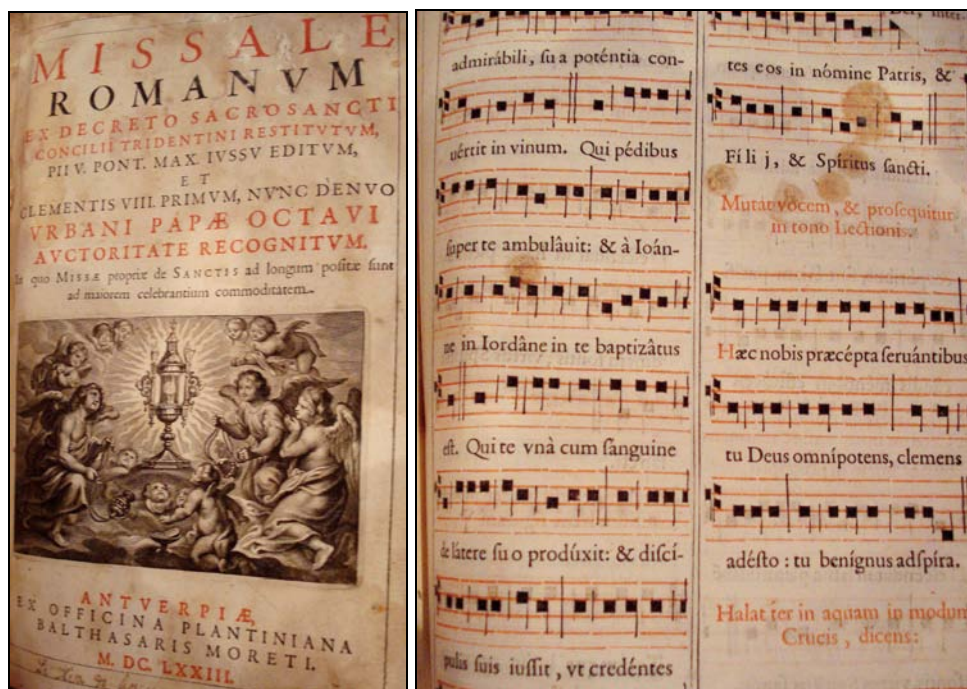 MISSALE
ROMANVM
EX DECRETO SACROSANCTI
CONCILII TRIDENTINI RESTITVTVM,
PII V. PONT. MAX. IVSSV EDITVM,
ET
CLEMENTIS VIII. PRIMVM, NVNC DENVO
VRBANI PAPÆ OCTAVI
AVCTORITATE RECOGNITVM.
In quo MISSÆ propriæ de SANCTIS ad longum positæ sunt
ad maiorem celebrantium commoditatem.
ANTVERPIÆ,
EX OFFICINA PLANTINIANA
BALTHASARIS MORETI.
M. DC. LXXIII.
admirábili, sua poténtia con-
uértit in vinum. Qui pédibus
super te ambulâuit: & à Ioán-
ne in Iordâne in te baptizâtus
est. Qui te vnà cum sanguine
de látere suo prodúxit: & discí-
pulis suis iussit, vt credéntes
tes eos in nómine Patris, &
Fílij, & Spíritus sancti.
Mutat vocem, & prosequitur
in tono Lectionis.
Hæc nobis præcépta seruántibus
tu Deus omnípotens, clemens
adésto: tu benígnus adspira.
Halat ter in aquam in modum
Crucis, dicens: